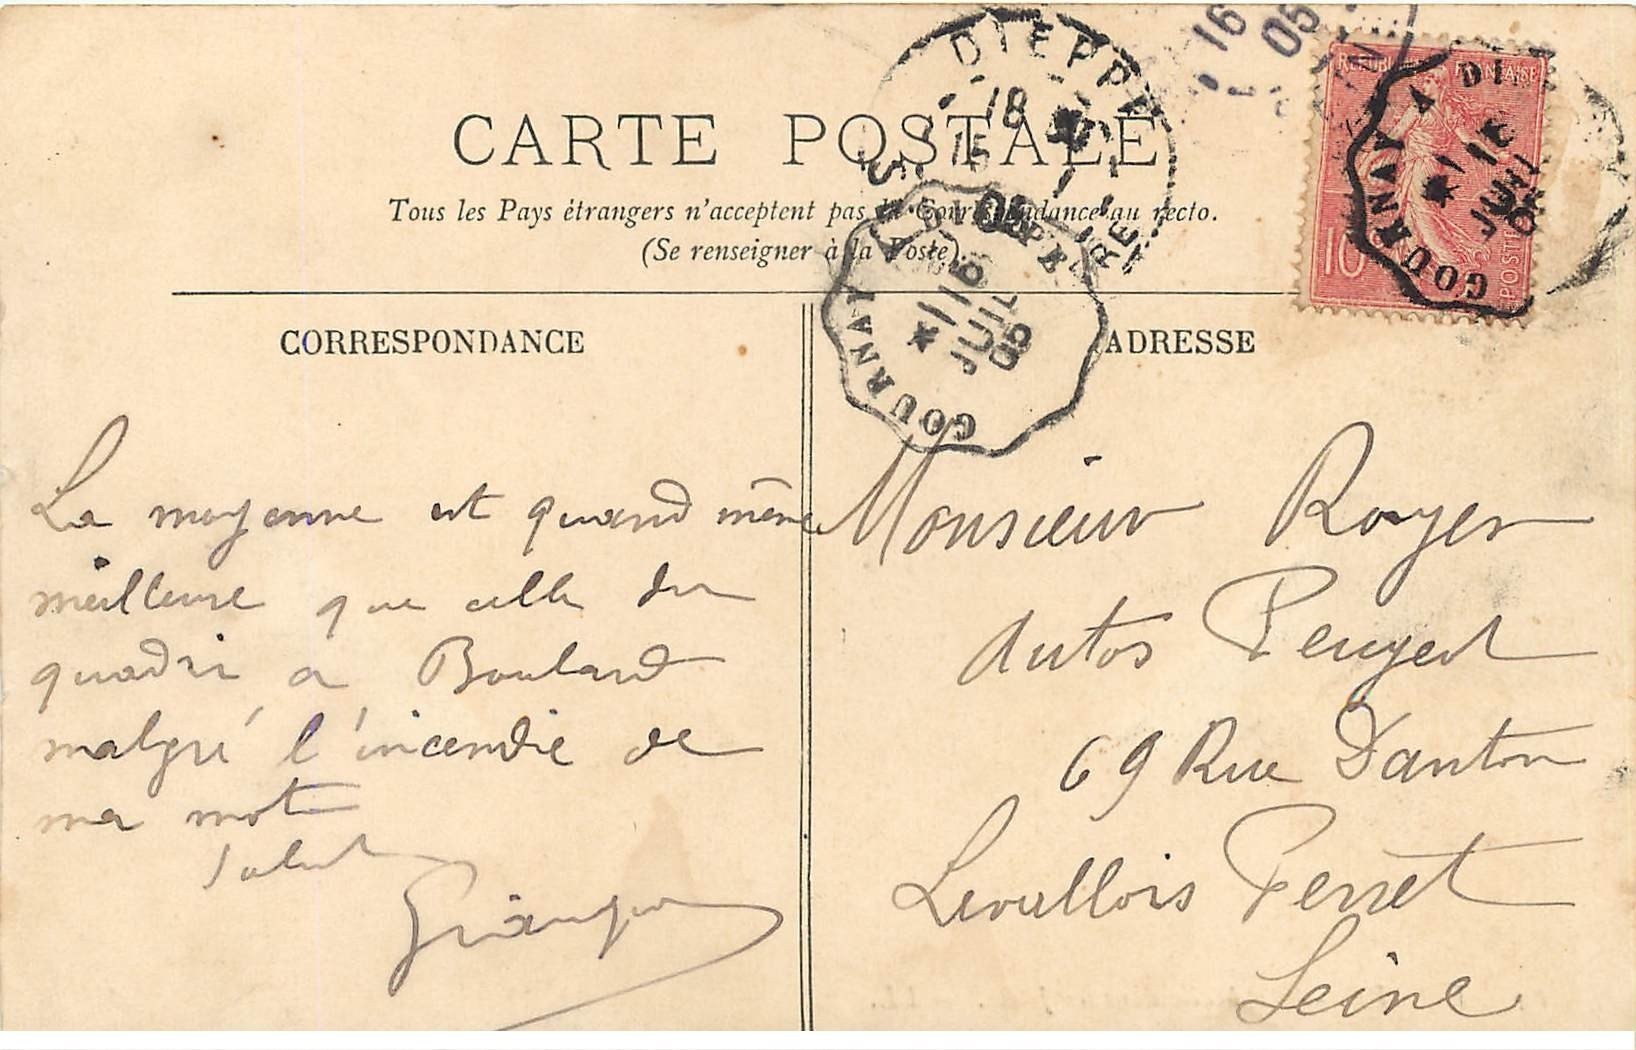 CARTE POSTALE
Tous les Pays étrangers n'acceptent pas la Correspondance au recto.
(Se renseigner à la Poste).
DIEPPE
18
15
05
16
05
REPUBLIQUE FRANÇAISE
10
POSTES
GOURNAY A DIEPPE
16
JUIL
05
GOURNAY A DIEPPE
16
JUIL
05
CORRESPONDANCE
La moyenne est quand même
meilleure que celle du
quadri a Boulard
malgré l'incendie de
ma moto
Salut
ADRESSE
Monsieur Royer
Autos Peugeot
69 Rue Danton
Levallois Perret
Seine